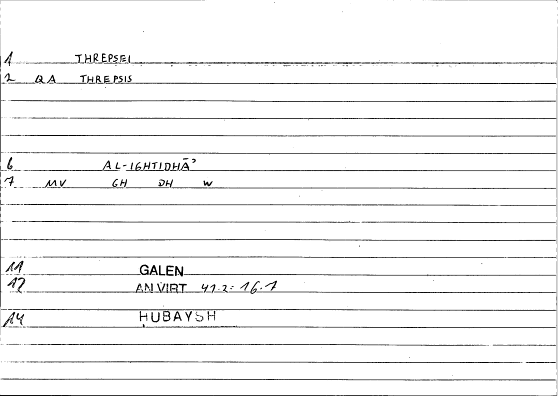 1 THREPSEI
2 QA THREPSIS
6 AL-IGHTIDHĀʾ
7 MV GH DH W
11 GALEN
12 AN VIRT 41.2: 16.1
14 ḤUBAYSH